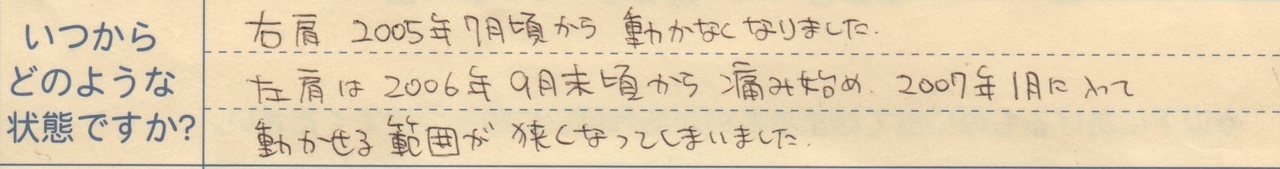 いつから
どのような
状態ですか?
右肩 2005年7月頃から 動かなくなりました.
左肩は2006年9月末頃から痛み始め. 2007年1月に入って
動かせる範囲が狭くなってしまいました.